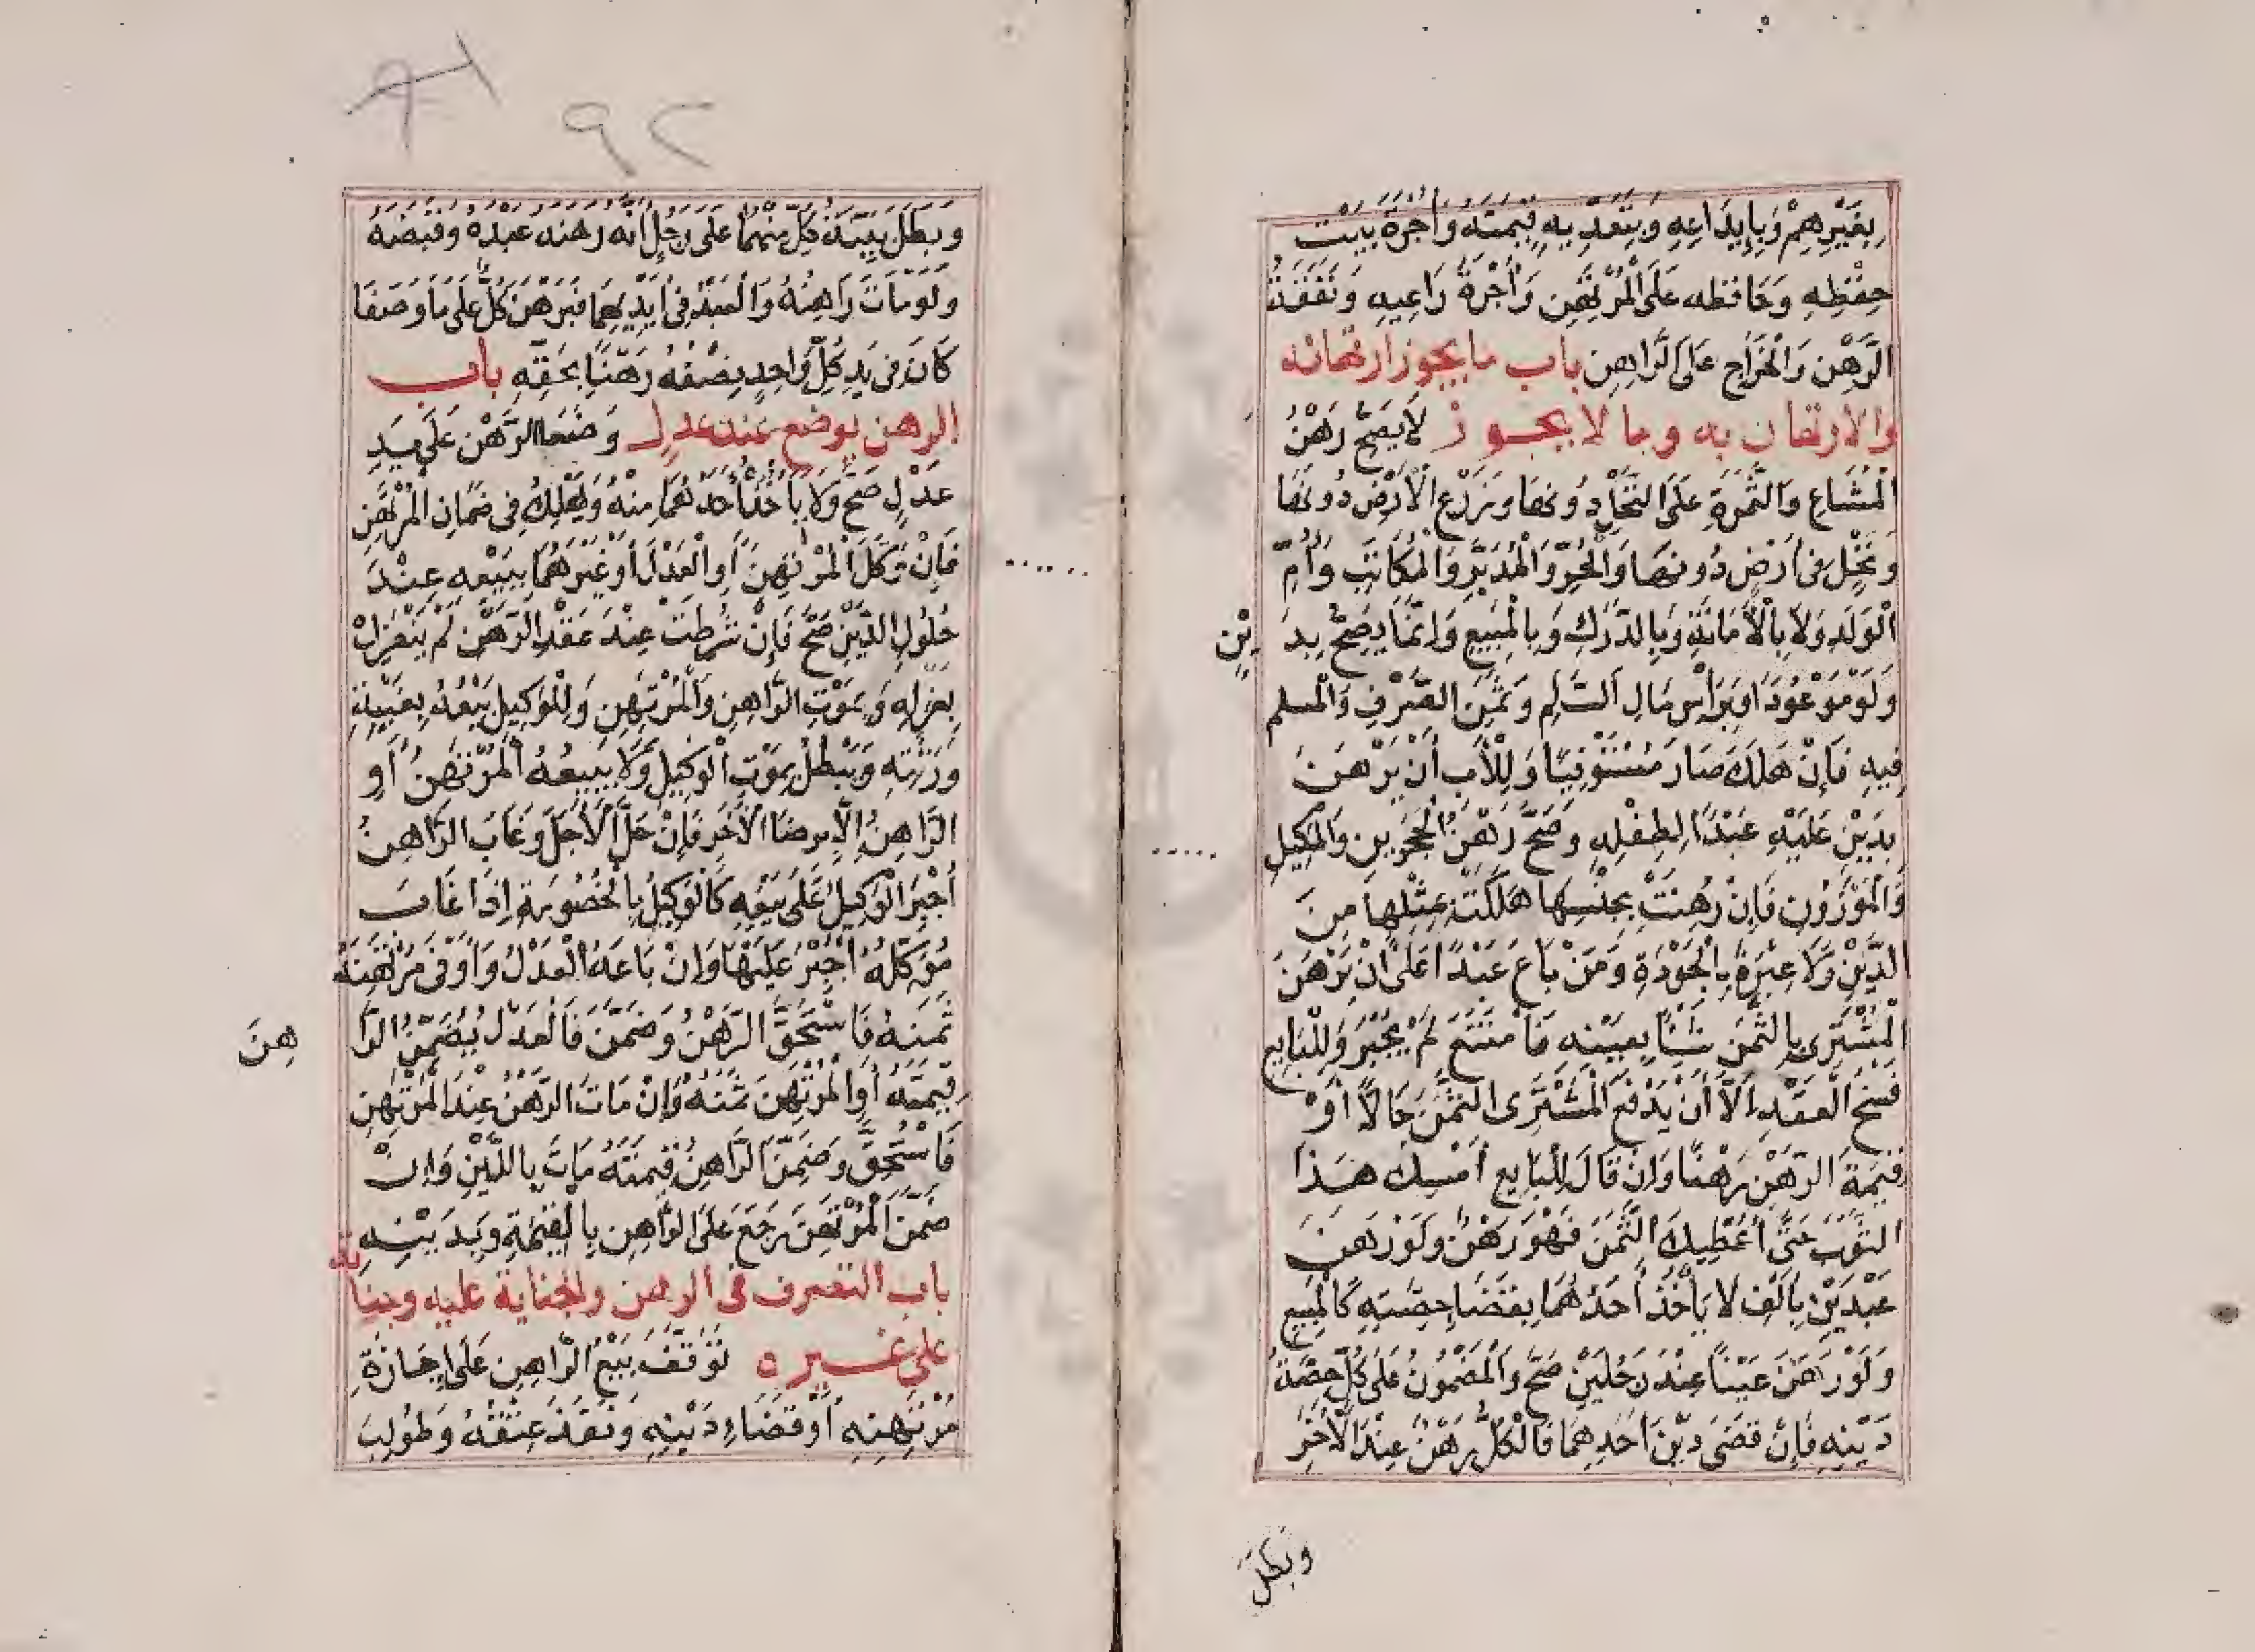 بِغَيْرِهِمْ وَبِإِيدَاعِهِ وَبِتَعَدِّيهِ قِيمَتَهُ وَأُجْرَةُ بَيْتِ
حِفْظِهِ وَحَافِظِهِ عَلَى الْمُرْتَهِنِ وَأُجْرَةُ رَاعِيهِ وَنَفَقَةُ
الرَّهْنِ وَالْخَرَاجِ عَلَى الرَّاهِنِ باب ما يجوز ارتهانه
والارتهان به وما لا يجوز لَا يَصِحُّ رَهْنُ
الْمُشَاعِ وَالثَّمَرَةِ عَلَى النَّخْلِ دُونَهَا وَزَرْعِ الْأَرْضِ دُونَهَا
وَنَخْلٍ فِى أَرْضٍ دُونَهَا وَالْحُرِّ وَالْمُدَبَّرِ وَالْمُكَاتَبِ وَأُمِّ
الْوَلَدِ وَلَا بِالْأَمَانَةِ وَبِالدَّرَكِ وَبِالْمَبِيعِ وَإِنَّمَا يَصِحُّ بِدَيْنٍ
وَلَوْ مَوْعُودًا وَبِرَأْسِ مَالِ السَّلَمِ وَثَمَنِ الصَّرْفِ وَالْمُسلمِ
فِيهِ فَإِنْ هَلَكَ صَارَ مُسْتَوْفِيًا وَلِلْأَبِ أَنْ يَرْهَنَ
بِدَيْنٍ عَلَيْهِ عَبْدًا لِطِفْلِهِ وَصَحَّ رَهْنُ الْحَجَرَيْنِ وَالْمَكِيلِ
وَالْمَوْزُونِ فَإِنْ رُهِنَتْ بِجِنْسِهَا هَلَكَتْ بِمِثْلِهَا مِنَ
الدَّيْنِ وَلَا عِبْرَةَ بِالْجَوْدَةِ وَمَنْ بَاعَ عَبْدًا عَلَى أَنْ يَرْهَنَ
الْمُشْتَرِى بِالثَّمَنِ شَيْئًا بِعَيْنِهِ فَامْتَنَعَ لَمْ يُجْبَرْ وَلِلْبَايِعِ
فَسْخُ الْعَقْدِ إِلَّا أَنْ يَدْفَعَ الْمُشْتَرِى الثَّمَنَ حَالًا أَوْ
قِيمَةَ الرَّهْنِ رَهْنًا وَإِنْ قَالَ لِلْبَايِعِ أَمْسِكْ هَذَا
الثَّوْبَ حَتَّى أُعْطِيكَ الثَّمَنَ فَهُوَ رَهْنٌ وَلَوْ رَهَنَ
عَبْدَيْنِ بِأَلْفٍ لَا يَأْخُذُ أَحَدَهُمَا بِقَضَا حِصَّتِهِ كَالْمَبِيعِ
وَلَوْ رَهَنَ عَيْنًا عِنْدَ رَجُلَيْنِ صَحَّ وَالْمَضْمُونُ عَلَى كُلٍّ حِصَّةُ
دَيْنِهِ فَإِنْ قَضَى دَيْنَ أَحَدِهِمَا فَالْكُلُّ رَهْنٌ عِنْدَ الْآخَرِ
وبَطَلَ
٩٢
وَبَطَلَ بَيِّنَةُ كُلٍّ مِنْهُمَا عَلَى رَجُلٍ أَنَّهُ رَهَنَهُ عَبْدَهُ وَقَبَضَهُ
وَلَوْ مَاتَ رَاهِنُهُ وَالْعَبْدُ فِى أَيْدِيهِمَا فَبَرْهَنَ كُلٌّ عَلَى مَا وَصَفَا
كَانَ فِى يَدِ كُلِّ وَاحِدٍ نِصْفُهُ رَهْنًا بِحَقِّهِ باب
الرهن يوضع عند عدل وَضَعَا الرَّهْنَ عَلَى يَدِ
عَدْلٍ صَحَّ وَلَا يَأْخُذُ أَحَدُهُمَا مِنْهُ وَيَهْلِكُ فِى ضَمَانِ الْمُرْتَهِنِ
فَإِنْ وَكَّلَ الْمُرْتَهِنَ أَوِ الْعَدْلَ أَوْ غَيْرَهُمَا بِبَيْعِهِ عِنْدَ
حُلُولِ الدَّيْنِ صَحَّ فَإِنْ شُرِطَتْ عِنْدَ عَقْدِ الرَّهْنِ لَمْ يَنْعَزِلْ
بِعَزْلِهِ وَبِمَوْتِ الرَّاهِنِ وَالْمُرْتَهِنِ وَلِلْوَكِيلِ بَيْعُهُ بِغَيْبَةِ
وَرَثَتِهِ وَيَبْطُلُ بِمَوْتِ الْوَكِيلِ وَلَا يَبِيعُهُ الْمُرْتَهِنُ أَوِ
الرَّاهِنُ إِلَّا بِرِضَا الْآخَرِ فَإِنْ حَلَّ الْأَجَلُ وَغَابَ الرَّاهِنُ
أُجْبِرَ الْوَكِيلُ عَلَى بَيْعِهِ كَالْوَكِيلِ بِالْخُصُومَةِ إِذَا غَابَ
مُوَكِّلُهُ أُجْبِرَ عَلَيْهَا وَإِنْ بَاعَهُ الْعَدْلُ وَأَوْفَى مُرْتَهِنَهُ
ثَمَنَهُ فَاسْتُحِقَّ الرَّهْنُ وَضَمِنَ فَالْعَدْلُ يُضَمِّنُ الرَّاهِنَ
قِيمَتَهُ أَوِ الْمُرْتَهِنَ ثَمَنَهُ وَإِنْ مَاتَ الرَّهْنُ عِنْدَ الْمُرْتَهِنِ
فَاسْتُحِقَّ وَضَمِنَ الرَّاهِنُ قِيمَتَهُ مَاتَ بِالدَّيْنِ وَإِنْ
ضَمَّنَ الْمُرْتَهِنَ رَجَعَ عَلَى الرَّاهِنِ بِالْقِيمَةِ وَبِدَيْنِهِ
باب التصرف فى الرهن والجناية عليه وجنايته
على غيره تَوَقَّفَ بَيْعُ الرَّاهِنِ عَلَى إِجَازَةِ
مُرْتَهِنِهِ أَوْ قَضَاءِ دَيْنِهِ وَنَفَذَ عِتْقُهُ وَطُولِبَ